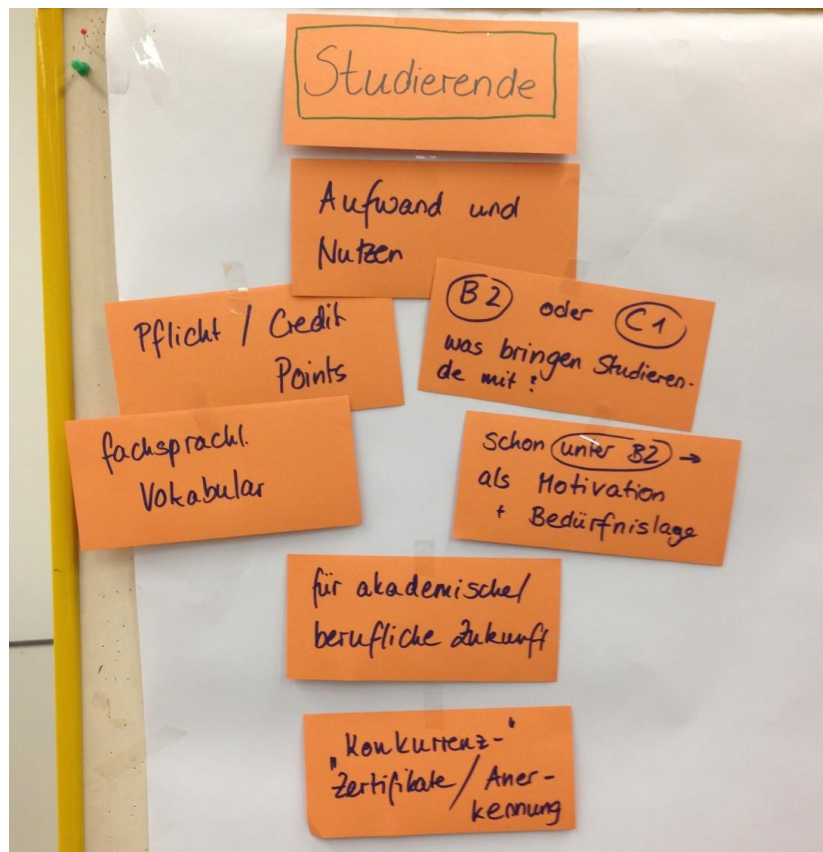 Studierende
Aufwand und
Nutzen
Pflicht / Credit
Points
B2 oder C1
was bringen Studieren-
de mit?
fachsprachl.
Vokabular
schon unter B2 →
als Motivation
+ Bedürfnislage
für akademische/
berufliche Zukunft
„Konkurrenz-"
Zertifikate / Aner-
kennung